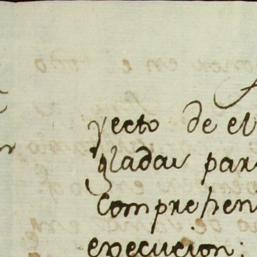 yecto de el
gladas par
comprehen
execucion: